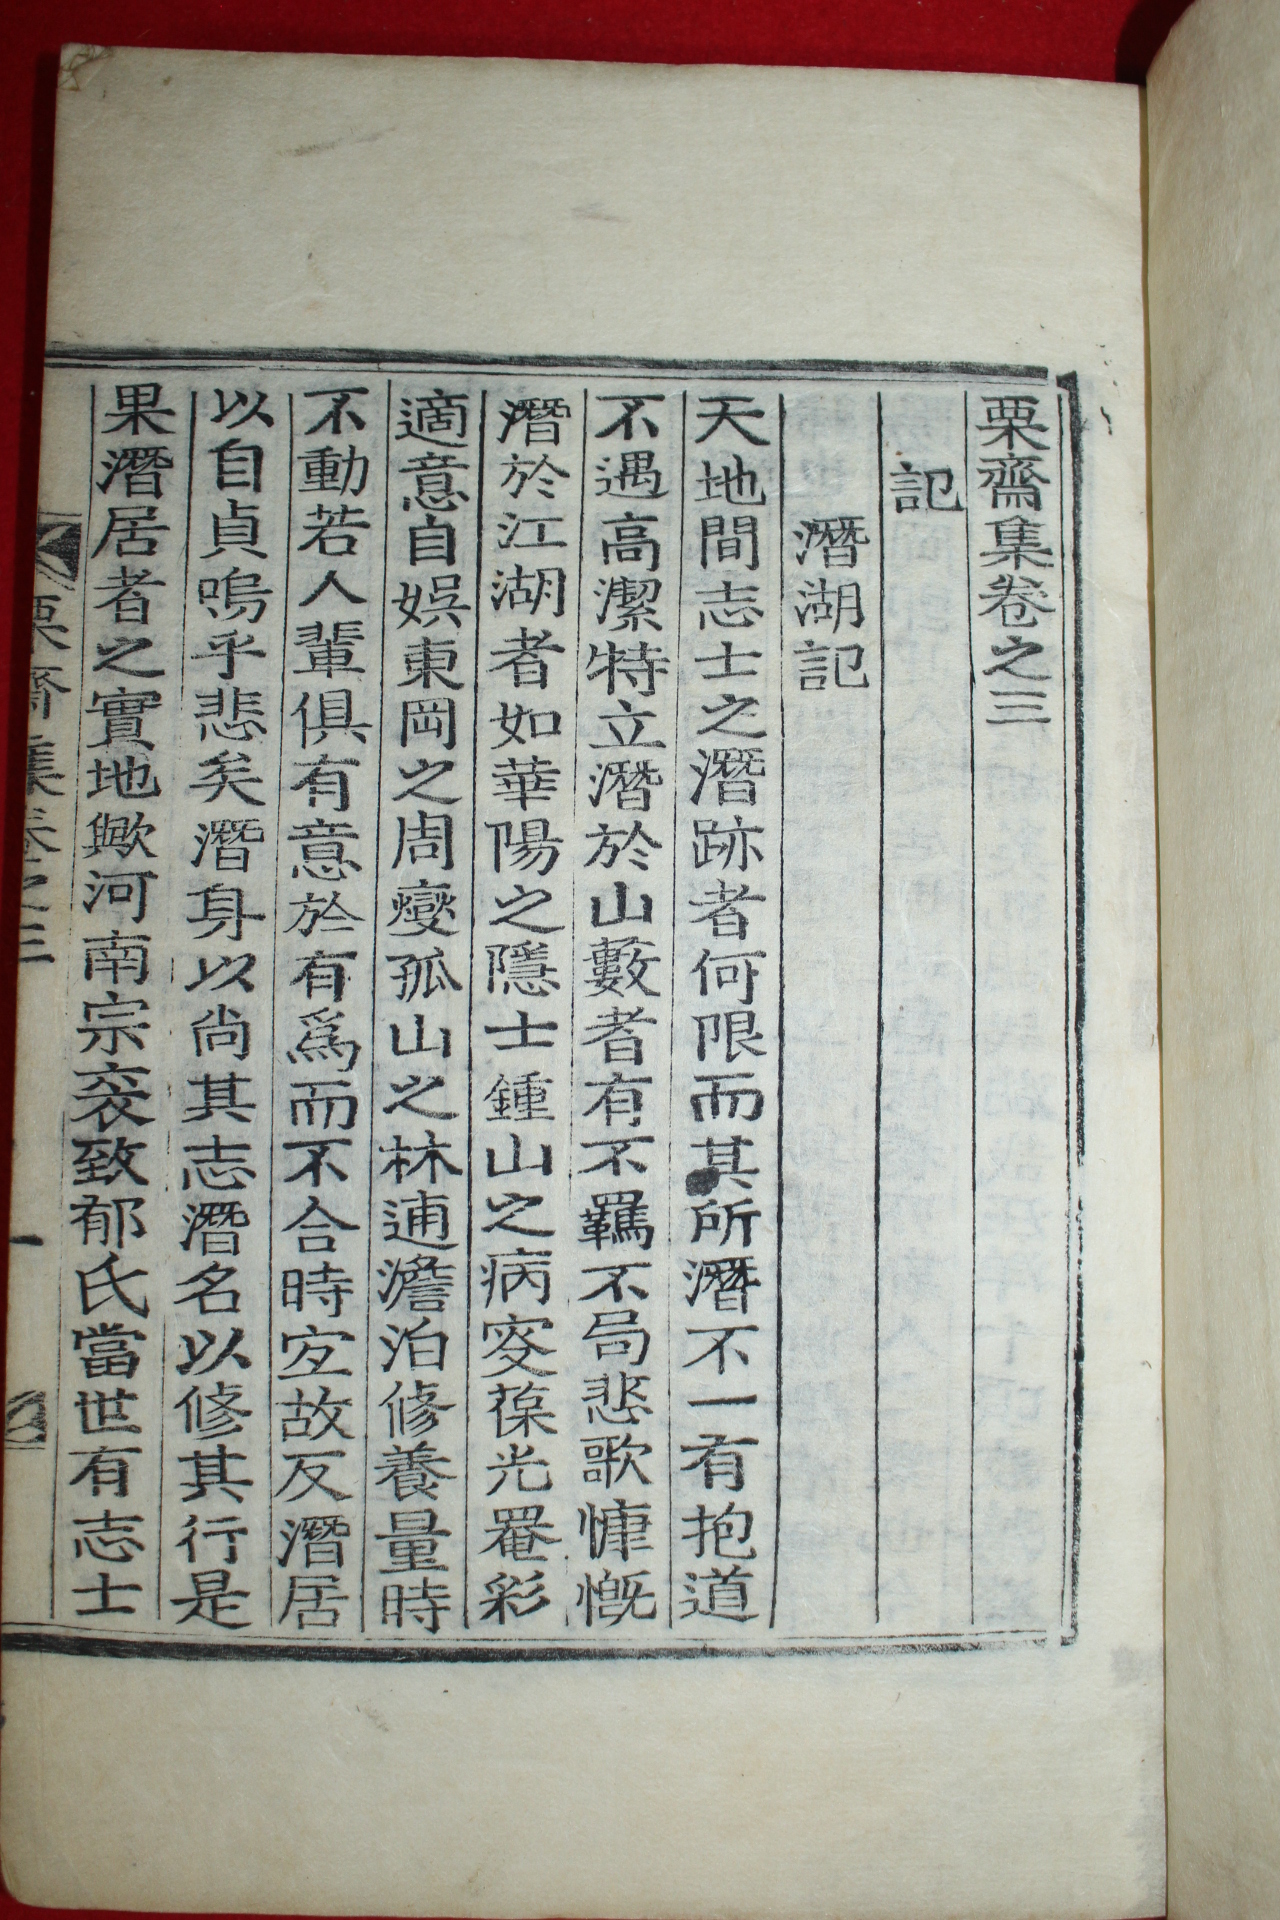 栗齋集卷之三
記
潛湖記
天地間志士之潛跡者何限而其所潛不一有抱道
不遇高潔特立潛於山藪者有不羈不局悲歌慷慨
潛於江湖者如華陽之隱士鍾山之病叟葆光罨彩
適意自娛東岡之周燮孤山之林逋澹泊修養量時
不動若人輩俱有意於有爲而不合時宜故反潛居
以自貞嗚乎悲矣潛身以尙其志潛名以修其行是
果潛居者之實地歟河南宗衮致郁氏當世有志士
栗齋集卷之三
一